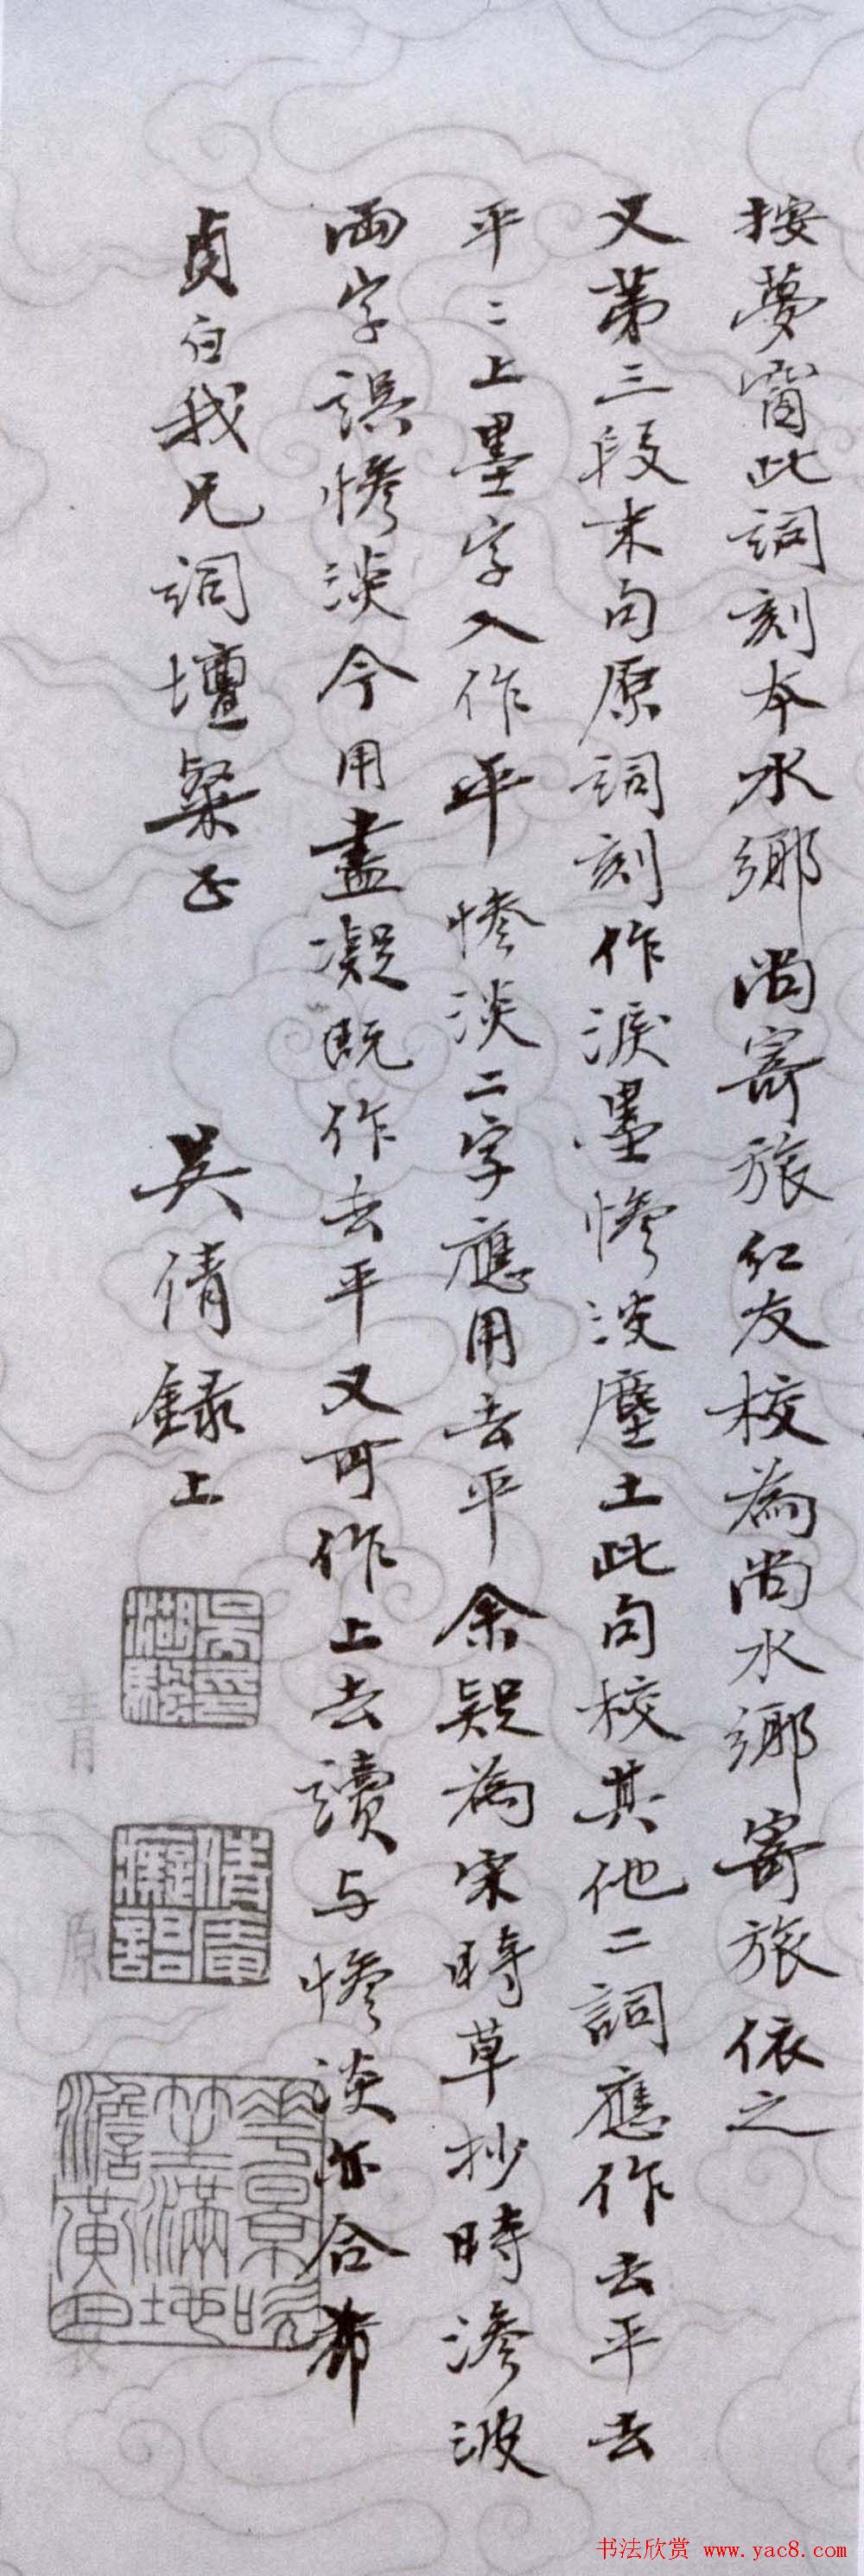 按夢窗此詞刻本水鄉尚寄旅仁友校為尚水鄉寄旅依之
又第三段末句原詞刻作淚墨慘淡塵土此句校其他二詞應作去平去
平二上墨字入作平慘淡二字應用去平余疑為宋時草抄時滲波
兩字誤慘淡今用盡凝既作去平又可作上去讀与慘淡亦合希
貞白我兄詞壇粲正
吳倩錄上
吳印湖帆
倩庵癡語
書法欣赏 www.yac8.com